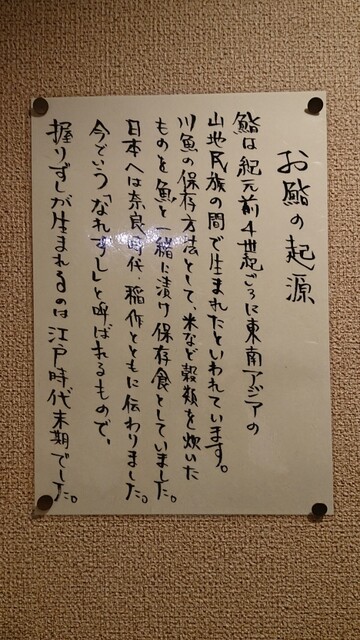 お鮨の起源
鮨は紀元前4世紀ごろに東南アジアの
山地民族の間で生まれたといわれています。
川魚の保存方法として、米など穀類を炊いた
ものを魚と一緒に漬け保存食としていました。
日本へは奈良時代、稲作とともに伝わりました。
今でいう「なれずし」と呼ばれるもので、
握りずしが生まれるのは江戸時代末期でした。